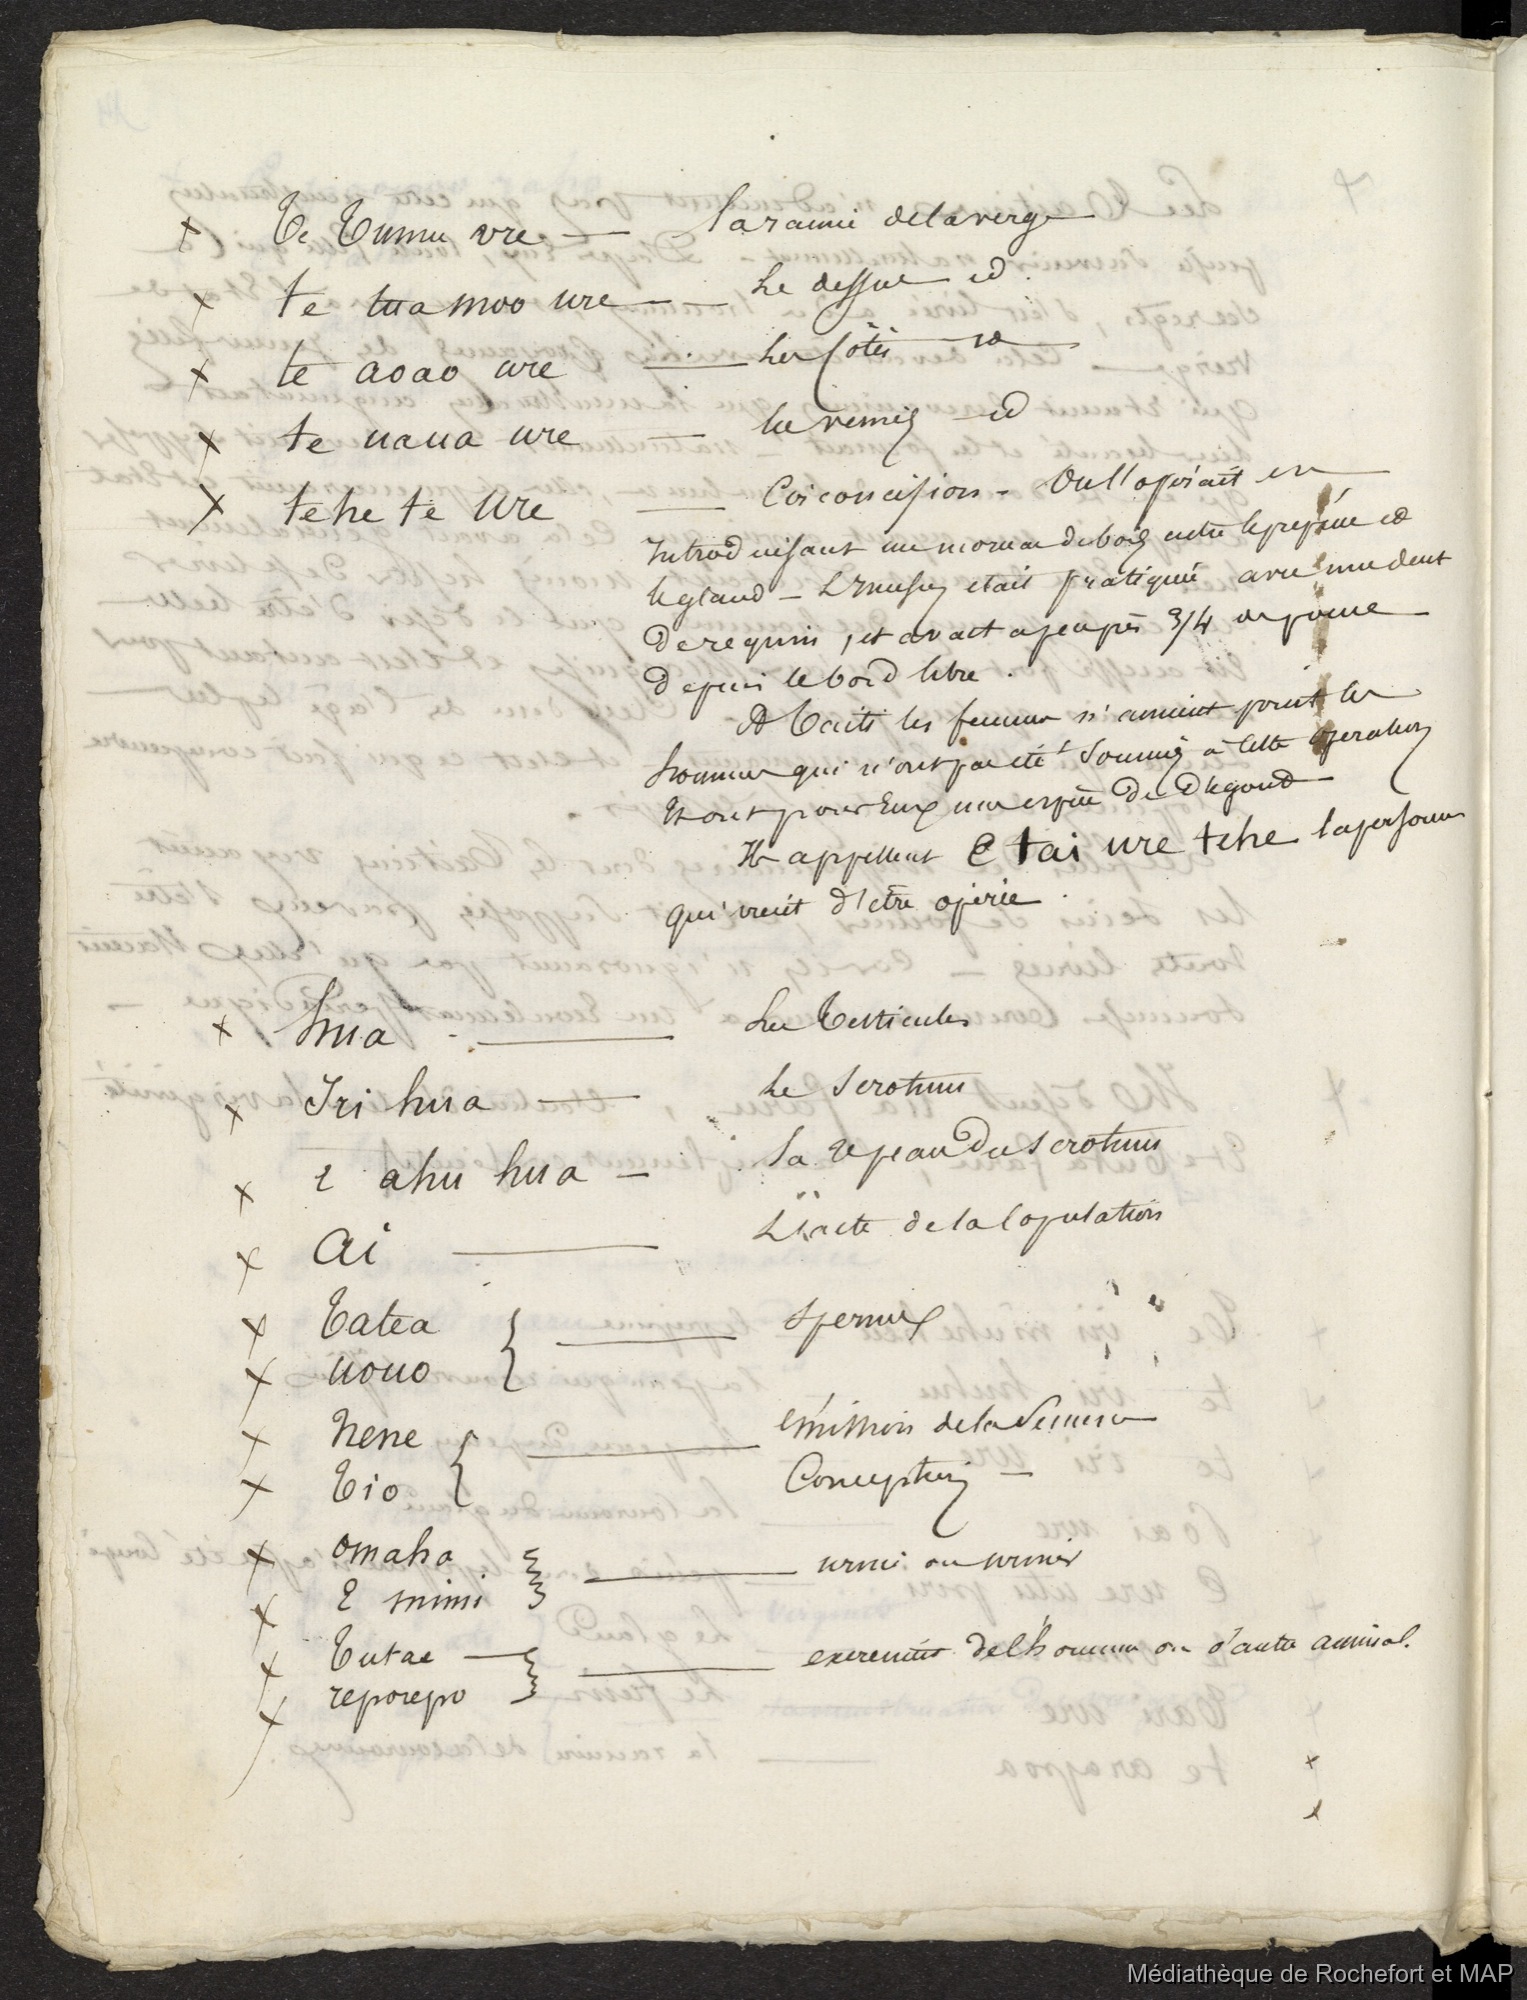 x te tumu ure — la racine de la verge
x te tuamoo ure — — Le dessus id.
x te aoao ure — les côtés id
x te uaua ure — les veines id
x tehe te ure — Circoncision - On l'opérait en
introduisant un morceau de bois entre le prépuce et
le gland — L'incision était pratiquée avec une dent
de requin, et avait à peu près 3/4 de pouce
depuis le bord libre.
A Taiti les femmes n'aiment point les
hommes qui n'ont pas été soumis à cette opération
et ont pour eux une espèce de dégoût
Ils appellent E tai ure tehe la personne
qui vient d'être opérée.
x hua — Les Testicules
x Iri hua — Le scrotum
x E ahu hua — La peau du scrotum
x ai — L'acte de la copulation
x Tatea } — sperme
x uouo
x Nene } — émission de la semence
x Tio Conception —
x omaha } — urine ou uriner
x E mimi
x Tutae — } — excréments de l'homme ou d'autre animal.
x reporepo
x
Médiathèque de Rochefort et MAP